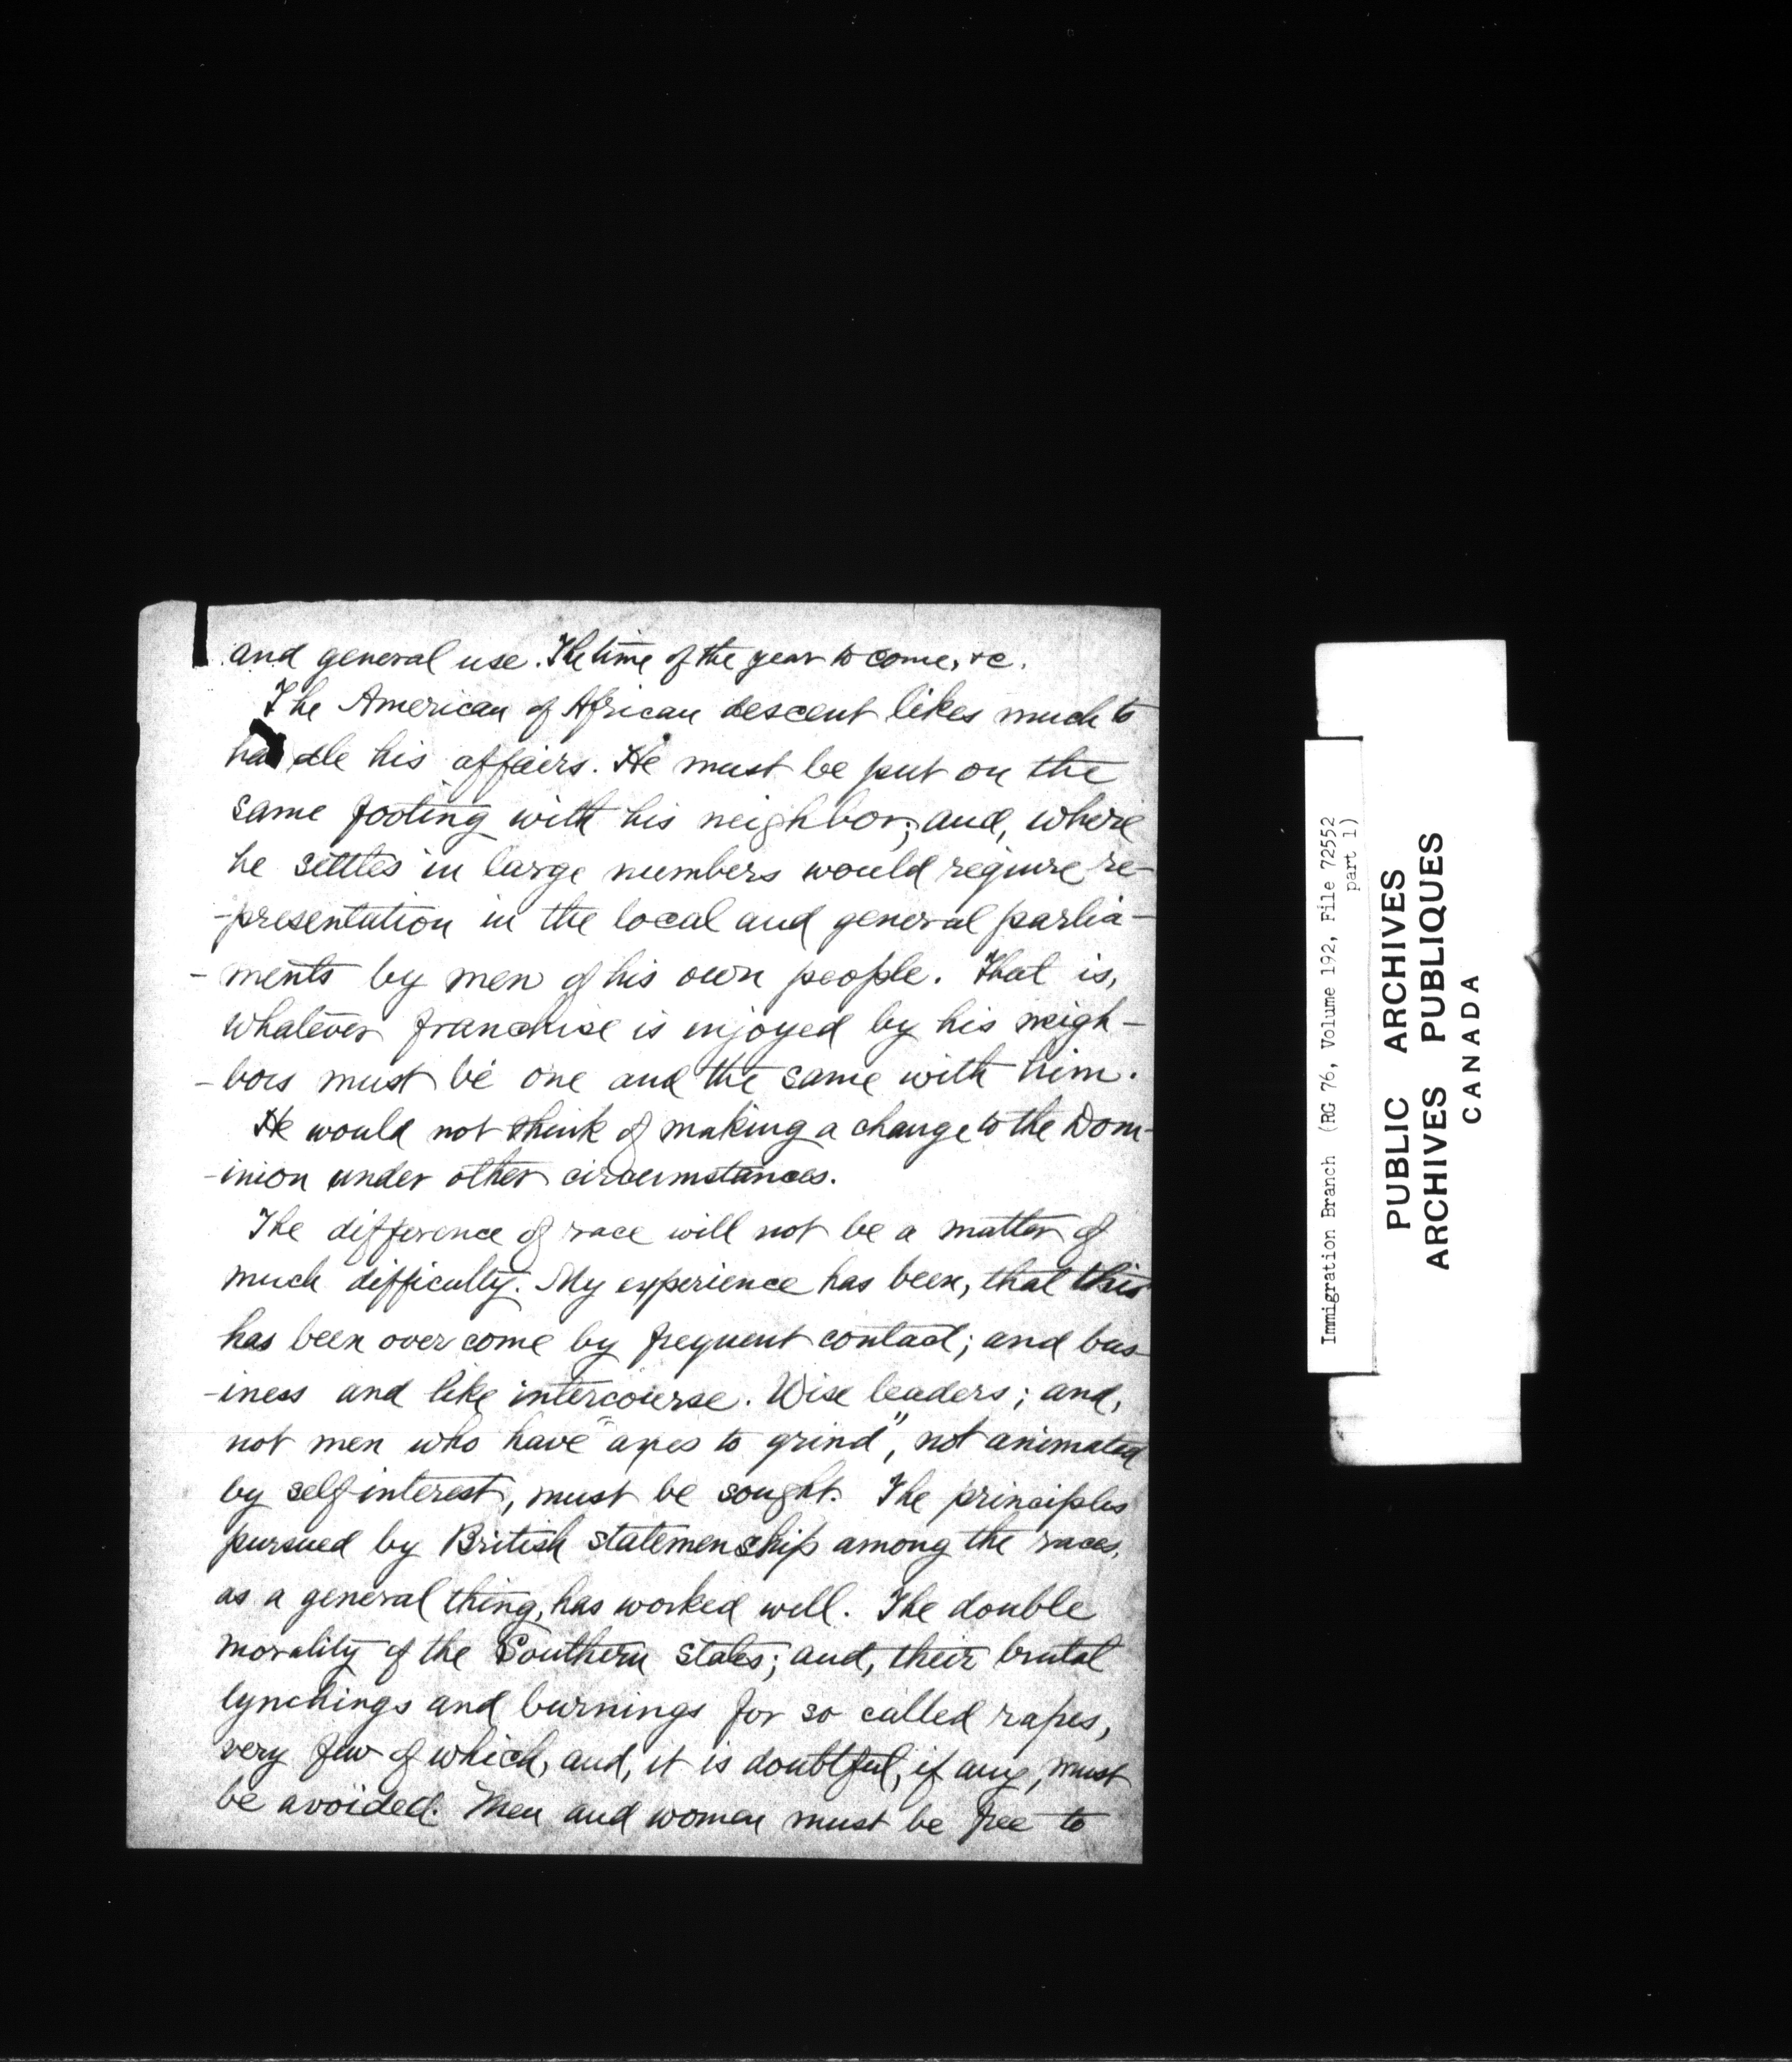 and general use. The time of the year to come, &c.
The American of African descent likes much to
handle his affairs. He must be put on the
same footing with his neighbor; and, where
he settles in large numbers would require re-
-presentation in the local and general parlia-
-ments by men of his own people. That is,
whatever franchise is enjoyed by his neigh-
-bors must be one and the same with him.
He would not think of making a change to the Dom-
-inion under other circumstances.
The difference of race will not be a matter of
much difficulty. My experience has been, that this
has been over come by frequent contact; and bus-
-iness and like intercourse. Wise leaders; and,
not men who have "axes to grind", not animated
by self interest, must be sought. The principles
pursued by British statemenship among the races,
as a general thing, has worked well. The double
morality of the Southern States; and, their brutal
lynchings and burnings for so called rapes,
very few of which, and, it is doubtful, if any, must
be avoided. Men and women must be free to
Immigration Branch (RG 76, Volume 192, File 72552
part 1)
PUBLIC ARCHIVES
ARCHIVES PUBLIQUES
CANADA